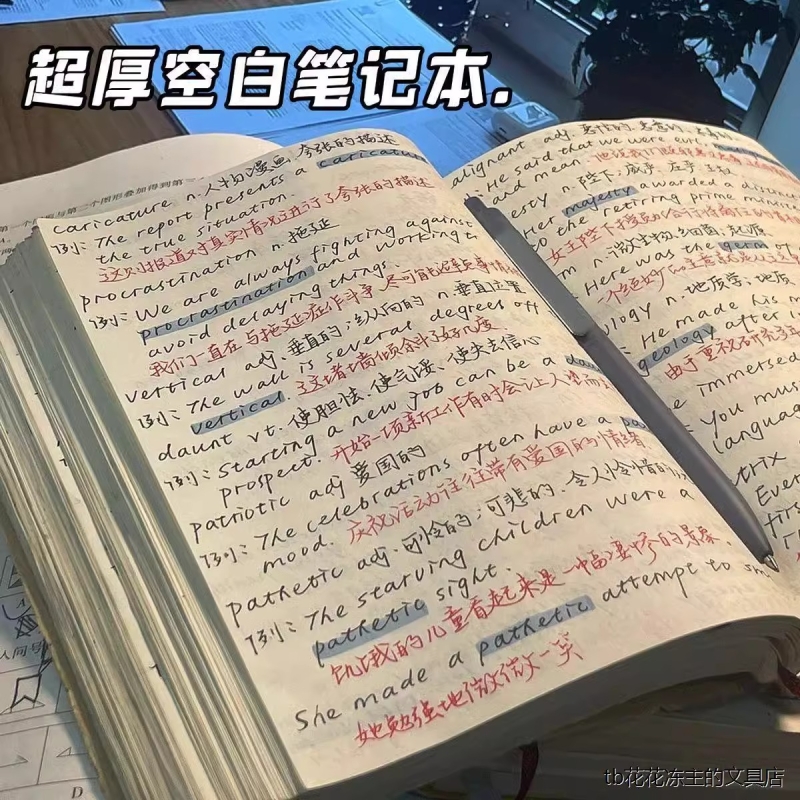 超厚空白笔记本.
caricature n.人物漫画,夸张的描述
例: The report presents a caricature
the true situation.
这则报道对真实情况进行了夸张的描述
procrastination n. 拖延
例: We are always fighting against
procrastination and working to
avoid delaying things.
我们一直在与拖延症作斗争,尽可能
vertical adj. 垂直的;纵向的 n.垂直位置
例: The wall is several degrees off
vertical. 这堵墙倾斜了好几度
daunt vt. 使胆怯,使气馁,使失去信心
例: Starting a new job can be a
prospect. 开始一项新工作有时会让人
patriotic adj 爱国的
例: The celebrations often have a
mood. 庆祝活动往往带有爱国的情绪
pathetic adj. 可怜的;可悲的,令人怜惜的
例: The starving children were a
pathetic sight.
饥饿的儿童看起来是一幅凄惨的景象.
She made a pathetic attempt to
她勉强地微微一笑
alignant adj.
: He said that we were
and mean.
esty n. 陛下,威严,庄严
: Her majesty awarded a
to the retiring prime
n.微生物,细菌;起源
: Here was the germ of
ology n.地质学;地质
: He made his
geology after
immersed
You must
language
trix
Ever
firs
第一个图形与第二个图形叠加得到第
D
tb花花冻主的文具店